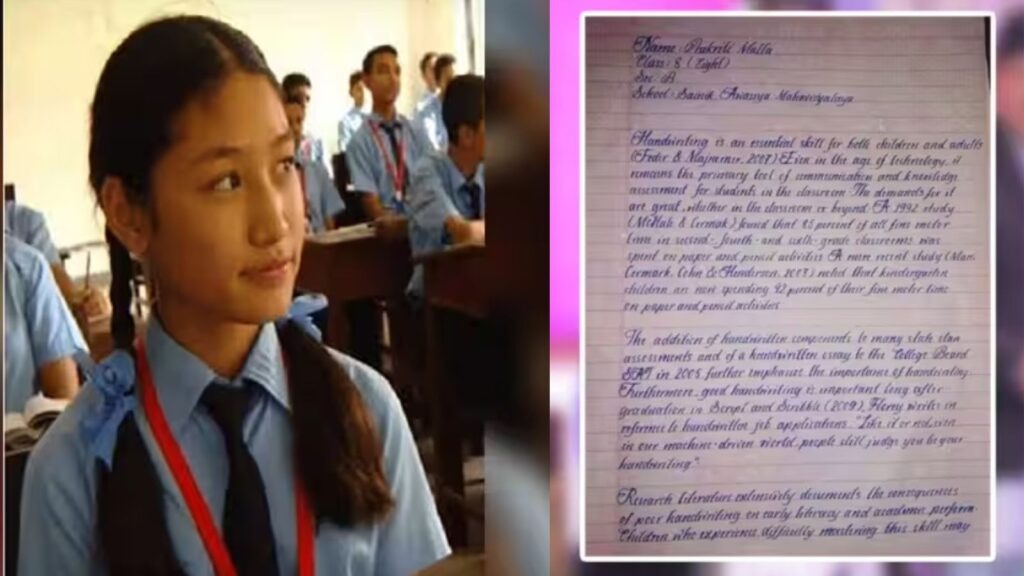 Name : Prakriti Malla
Class : 8 (Eight)
Sec : 'B'
School : Sainik Awasiya Mahavidyalaya
Handwriting is an essential skill for both children and adults
(Feder & Majnemer, 2007). Even in the age of technology, it
remains the primary tool of communication and knowledge
assessment for students in the classroom. The demands for it
are great, whether in the classroom or beyond. A 1992 study
(McHale & Cermak) found that 85 percent of all fine motor
time in second-, fourth- and sixth-grade classrooms was
spent on paper and pencil activities. A more recent study (Marr,
Cermark, Cohn & Henderson, 2003) noted that kindergarten
children are now spending 42 percent of their fine motor time
on paper and pencil activities.
The addition of handwritten components to many state
assessments and of a handwritten essay to the "College Board
SAT in 2005 further emphasize the importance of handwriting.
Furthermore, good handwriting is important long after
graduation. in Script and Scribble (2009), Florey writes in
reference to handwritten job applications. "Like it or not, even
in our machine-driven world, people still judge you by your
handwriting."
Research Literature extensively documents the consequences
of poor handwriting on early literacy and academic perform
Children who experience difficulty mastering this skill may